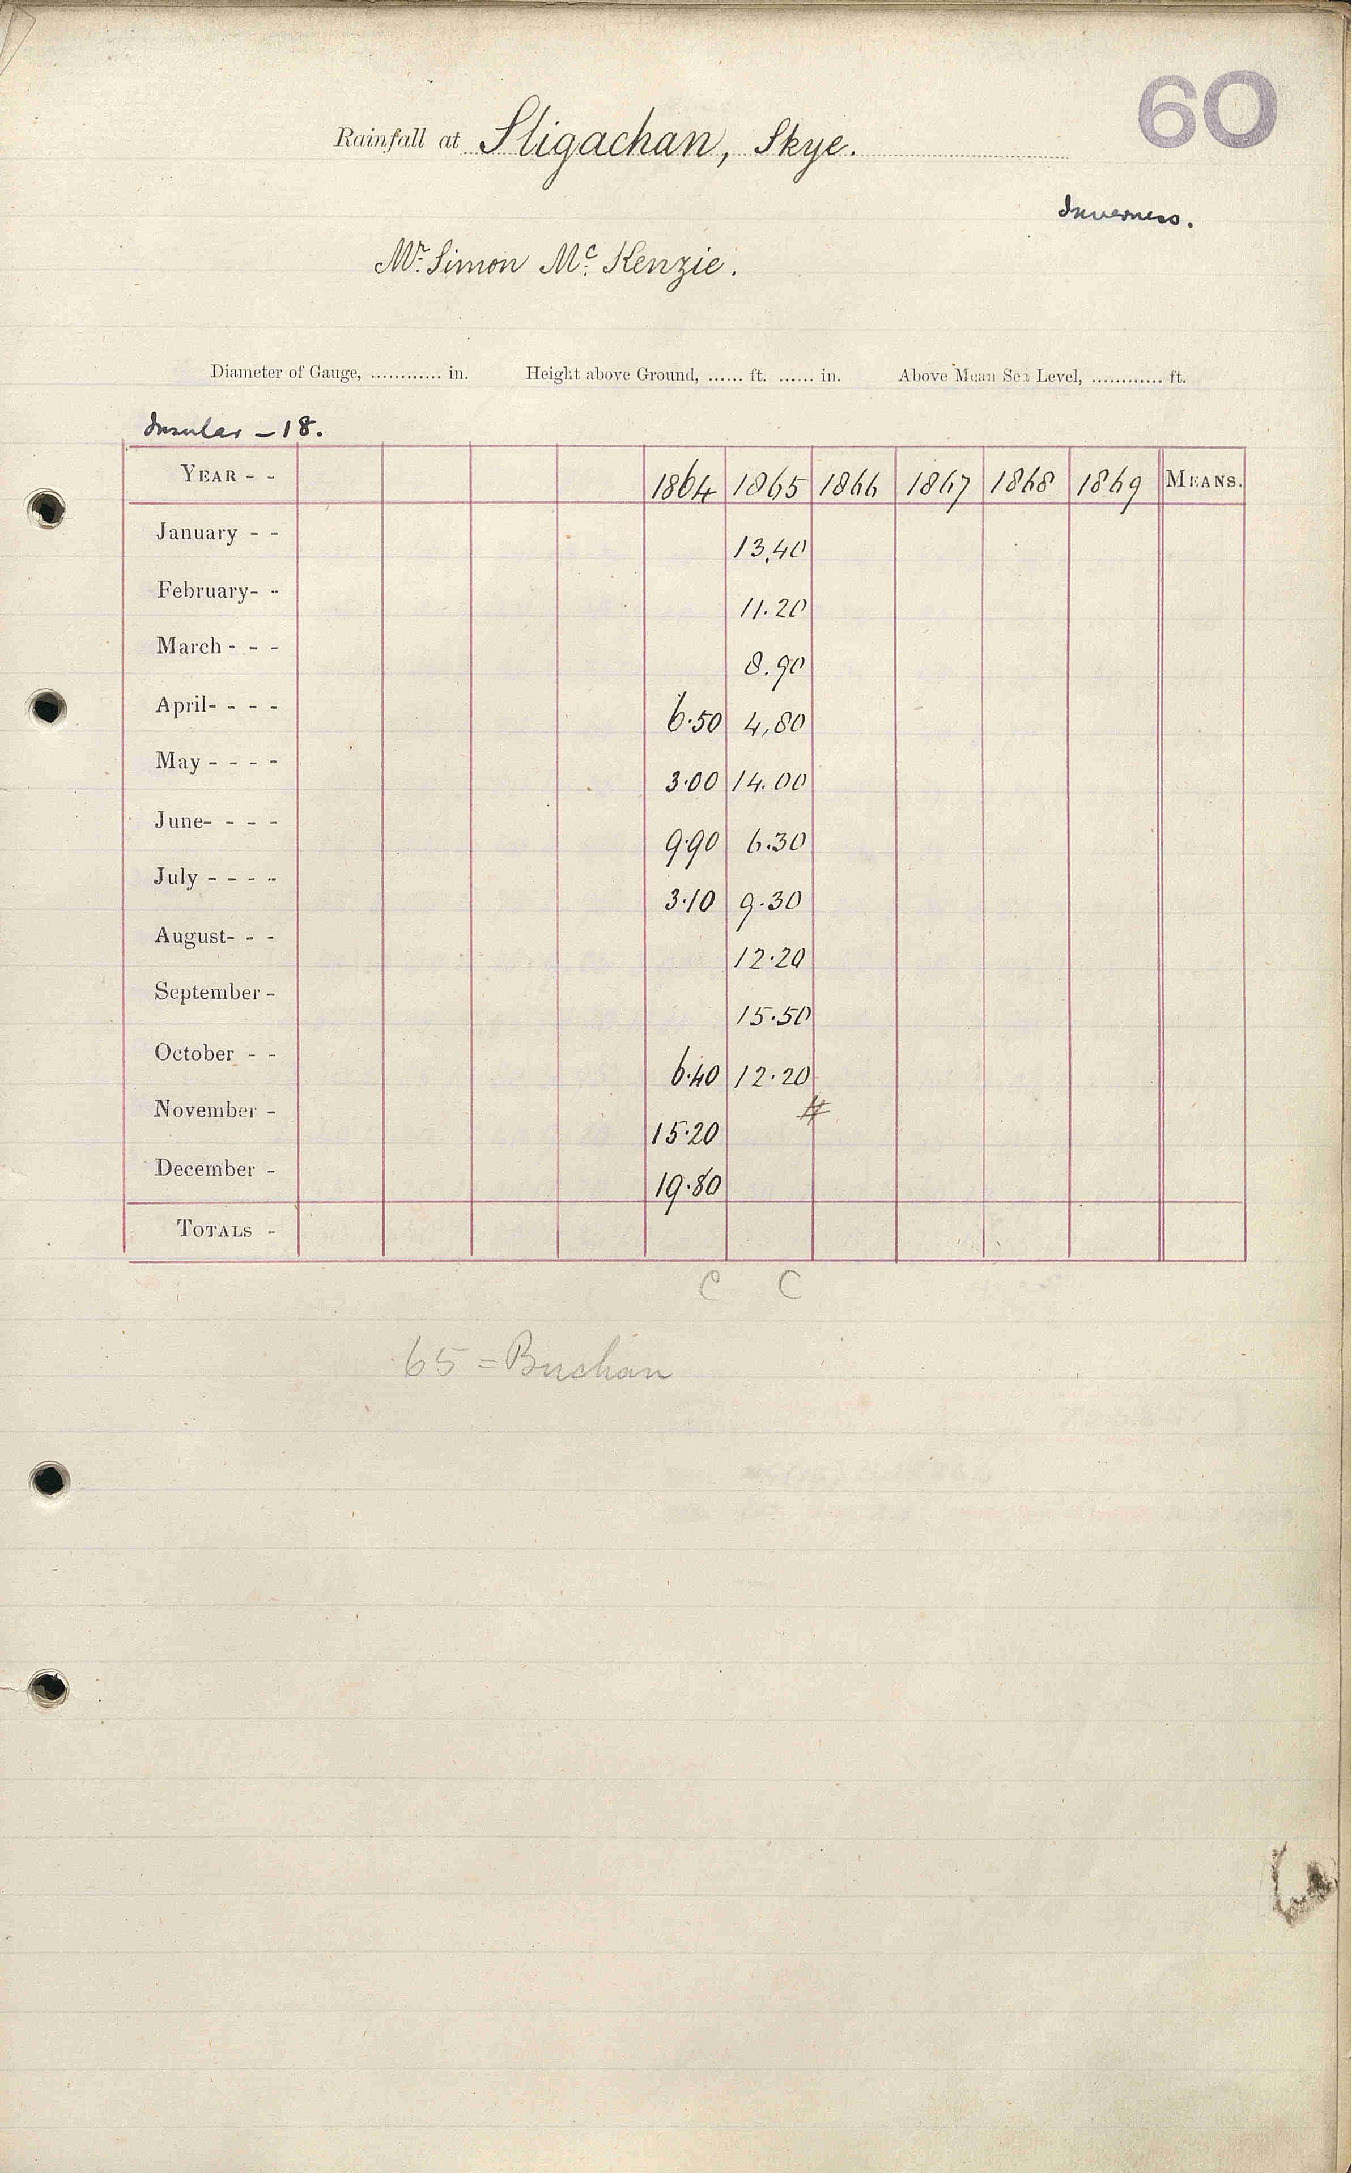 60
Rainfall at Sligachan, Skye.
Inverness.
Mr. Simon Mc. Kenzie.
Diameter of Gauge, ............ in. Height above Ground, ...... ft. ...... in. Above Mean Sea Level, ............ ft.
Insular - 18.
YEAR - - 1864 1865 1866 1867 1868 1869 MEANS.
January - - 13.40
February- - 11.20
March - - - 8.90
April- - - - 6.50 4.80
May - - - - 3.00 14.00
June- - - - 9.90 6.30
July - - - - 3.10 9.30
August- - - 12.20
September - 15.50
October - - 6.40 12.20
November - 15.20 #
December - 19.80
TOTALS -
C C
65 = Buchan